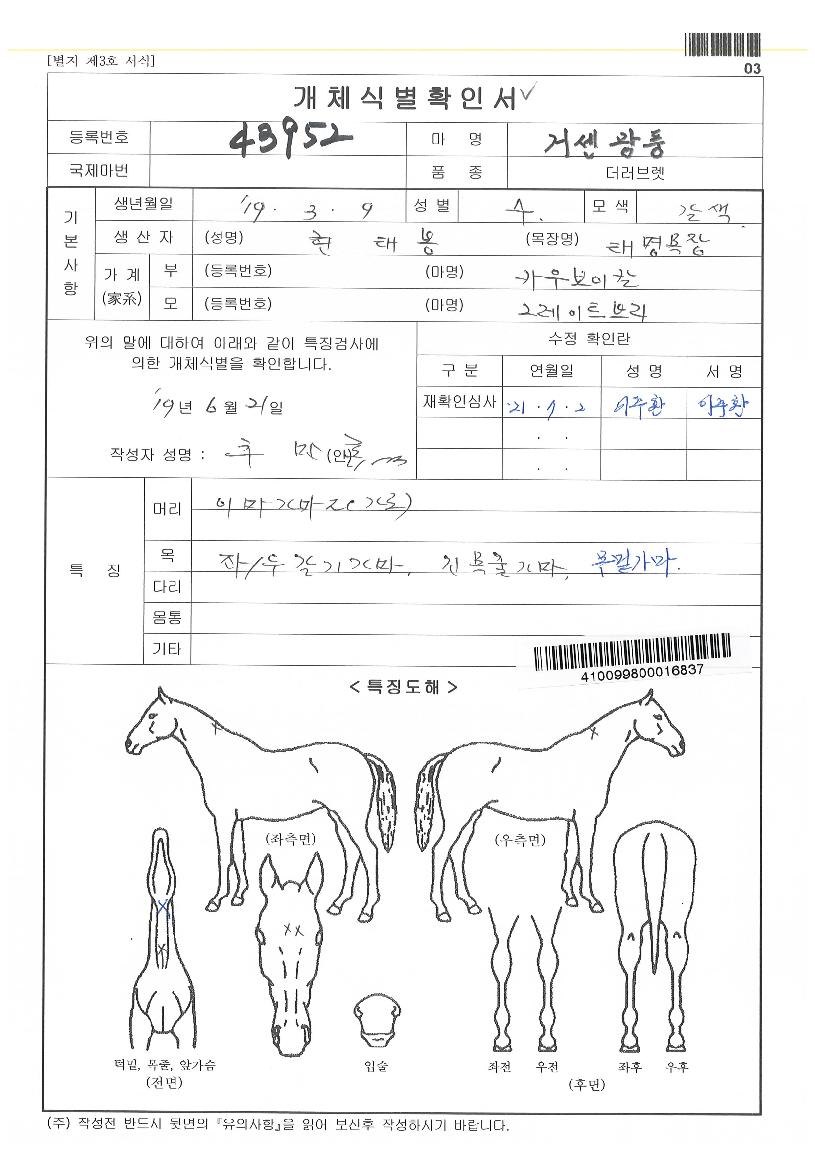 [별지 제3호 서식]
03
개체식별확인서
등록번호 43952 마 명 거센광풍
국제마번 품 종 더러브렛
기본사항
생년월일 '19. 3. 9 성별 수. 모색 갈색
생산자 (성명) 태봉 (목장명) 태명목장
가계 (家系) 부 (등록번호) (마명) 카우보이칼
모 (등록번호) (마명) 그레이트보리
위의 말에 대하여 이래와 같이 특징검사에
의한 개체식별을 확인합니다.
'19년 6월 21일
작성자 성명 : (인)
수정 확인란
구분 연월일 성명 서명
재확인심사 '21. 7. 2 이주환 이주환
. .
. .
특 징
머리 이마가마2(가로)
목 좌/우갈기가마, 긴목줄가마, 목밑가마.
다리
몸통
기타
410099800016837
< 특징도해 >
(좌측면) (우측면)
턱밑, 목줄, 앞가슴
(전면)
입술
좌전 우전 좌후 우후
(후면)
(주) 작성전 반드시 뒷면의 『유의사항』을 읽어 보신후 작성하시기 바랍니다.